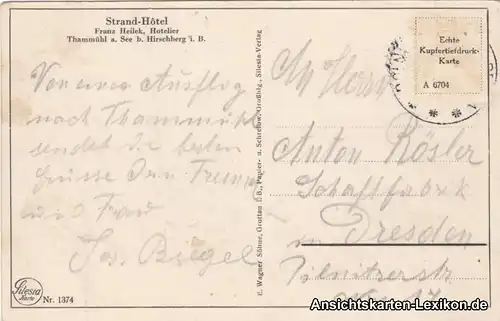 Strand-Hôtel
Franz Heilek, Hotelier
Thammühl a. See b. Hirschberg i. B.
Von einem Ausflug
nach Thammühl
sendet die besten
Grüsse Dein Freund
und Frau
Jos. Biegel
Silesia
Karte
Nr. 1374
E. Wagner Söhne, Grottau i. B., Papier- u. Schreibw.-Großhdg., Silesia-Verlag
Echte
Kupfertiefdruck-
Karte
A 6704
An Herrn
Anton Rösler
Schaftfabrik
in Dresden
Pilnitzerstr
Ansichtskarten-Lexikon.de